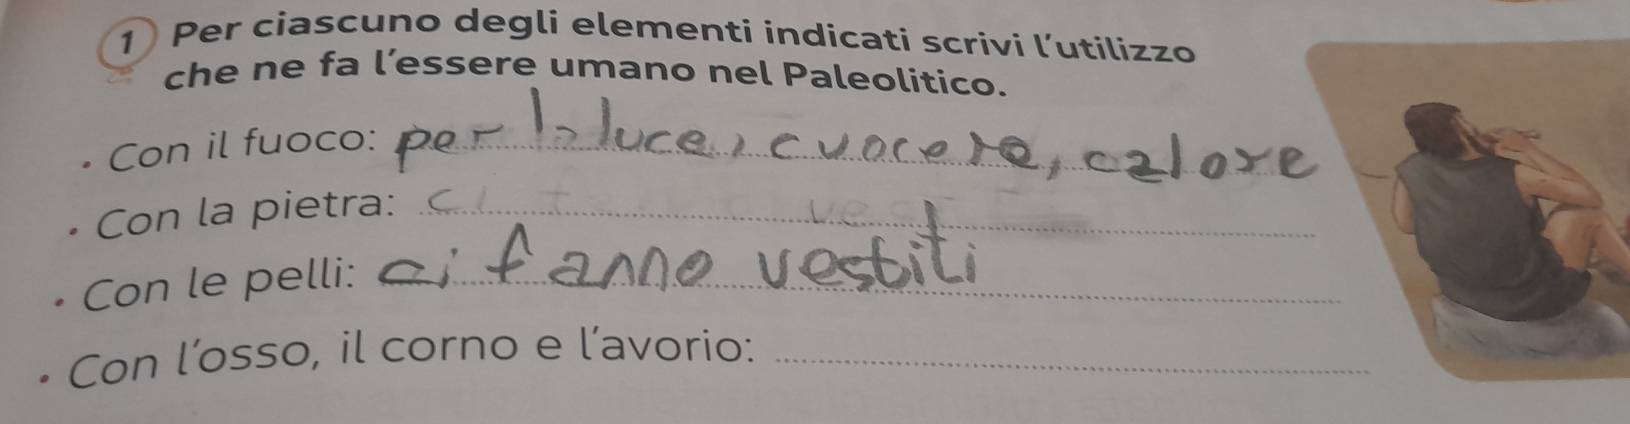 1 Per ciascuno degli elementi indicati scrivi l'utilizzo
che ne fa l'essere umano nel Paleolitico.
• Con il fuoco: per la luce, cuocere, calore
• Con la pietra:
• Con le pelli: ci fanno vestiti
• Con l'osso, il corno e l'avorio: